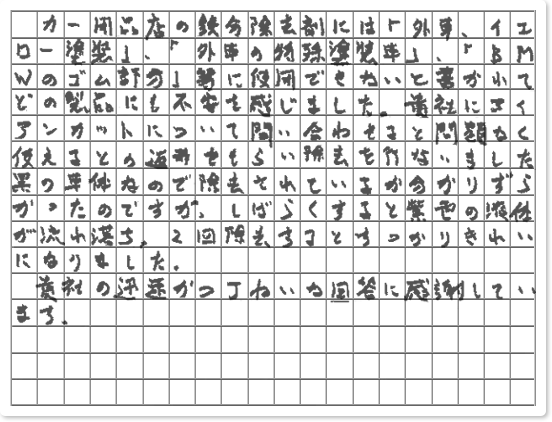 カー用品店の鉄分除去剤には「外車、イエ
ロー塗装」、「外車の特殊塗装車」、「BM
Wのゴム部分」等に使用できないと書かれて
どの製品にも不安を感じました。貴社にエイ
アンカットについて問い合わせると問題なく
使えるとの返事をもらい除去を行ないました
黒の車体なので除去されているか分かりずら
かったのですが、しばらくすると紫色の液体
が流れ落ち、2回除去するとすっかりきれい
になりました。
貴社の迅速かつていねいな回答に感謝してい
ます。